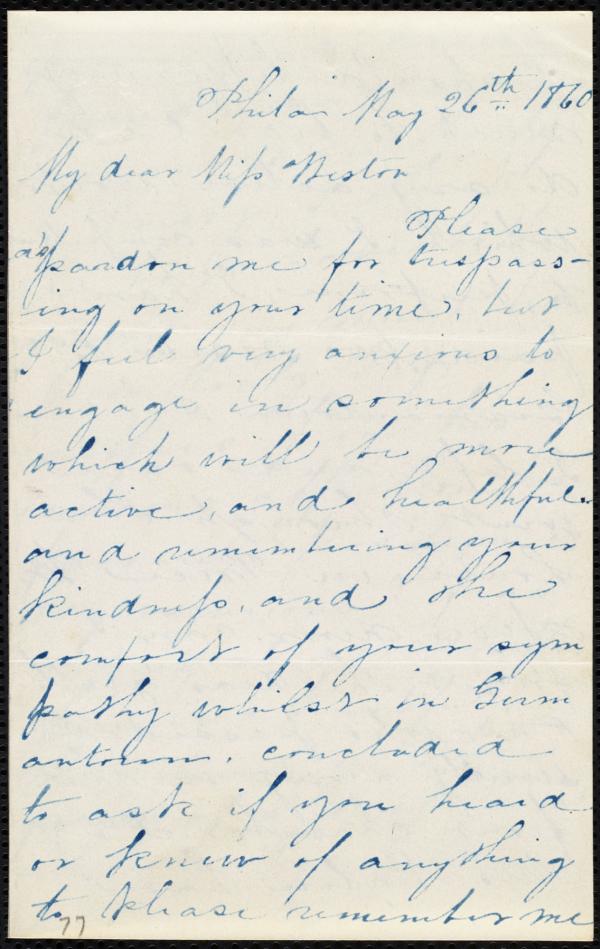 Phila May 26th 1860
My dear Miss Weston
Please
pardon me for trespass-
ing on your time, but
I feel very anxious to
engage in something
which will be more
active, and healthful.
and remembering your
kindness, and the
comfort of your sym
pathy whilst in Germ
antown, concluded
to ask if you heard
or knew of anything
to please remember me
77